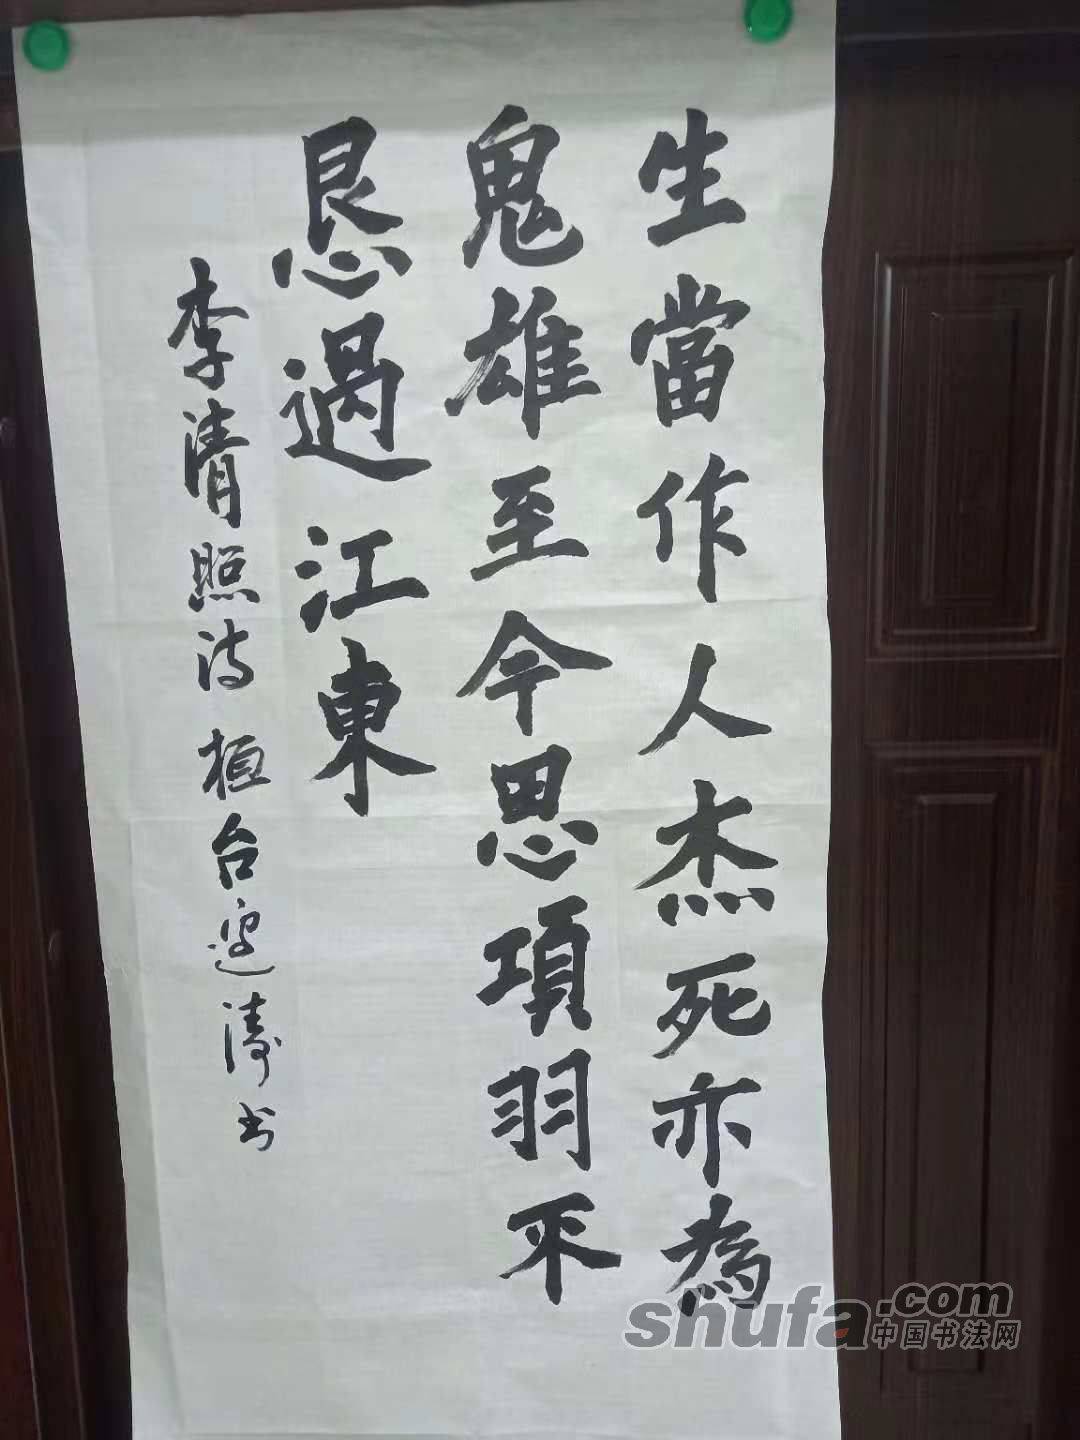 生當作人杰死亦為
鬼雄至今思項羽不
恳過江東
李清照诗 桓台边涛书
shufa.com
中国书法网